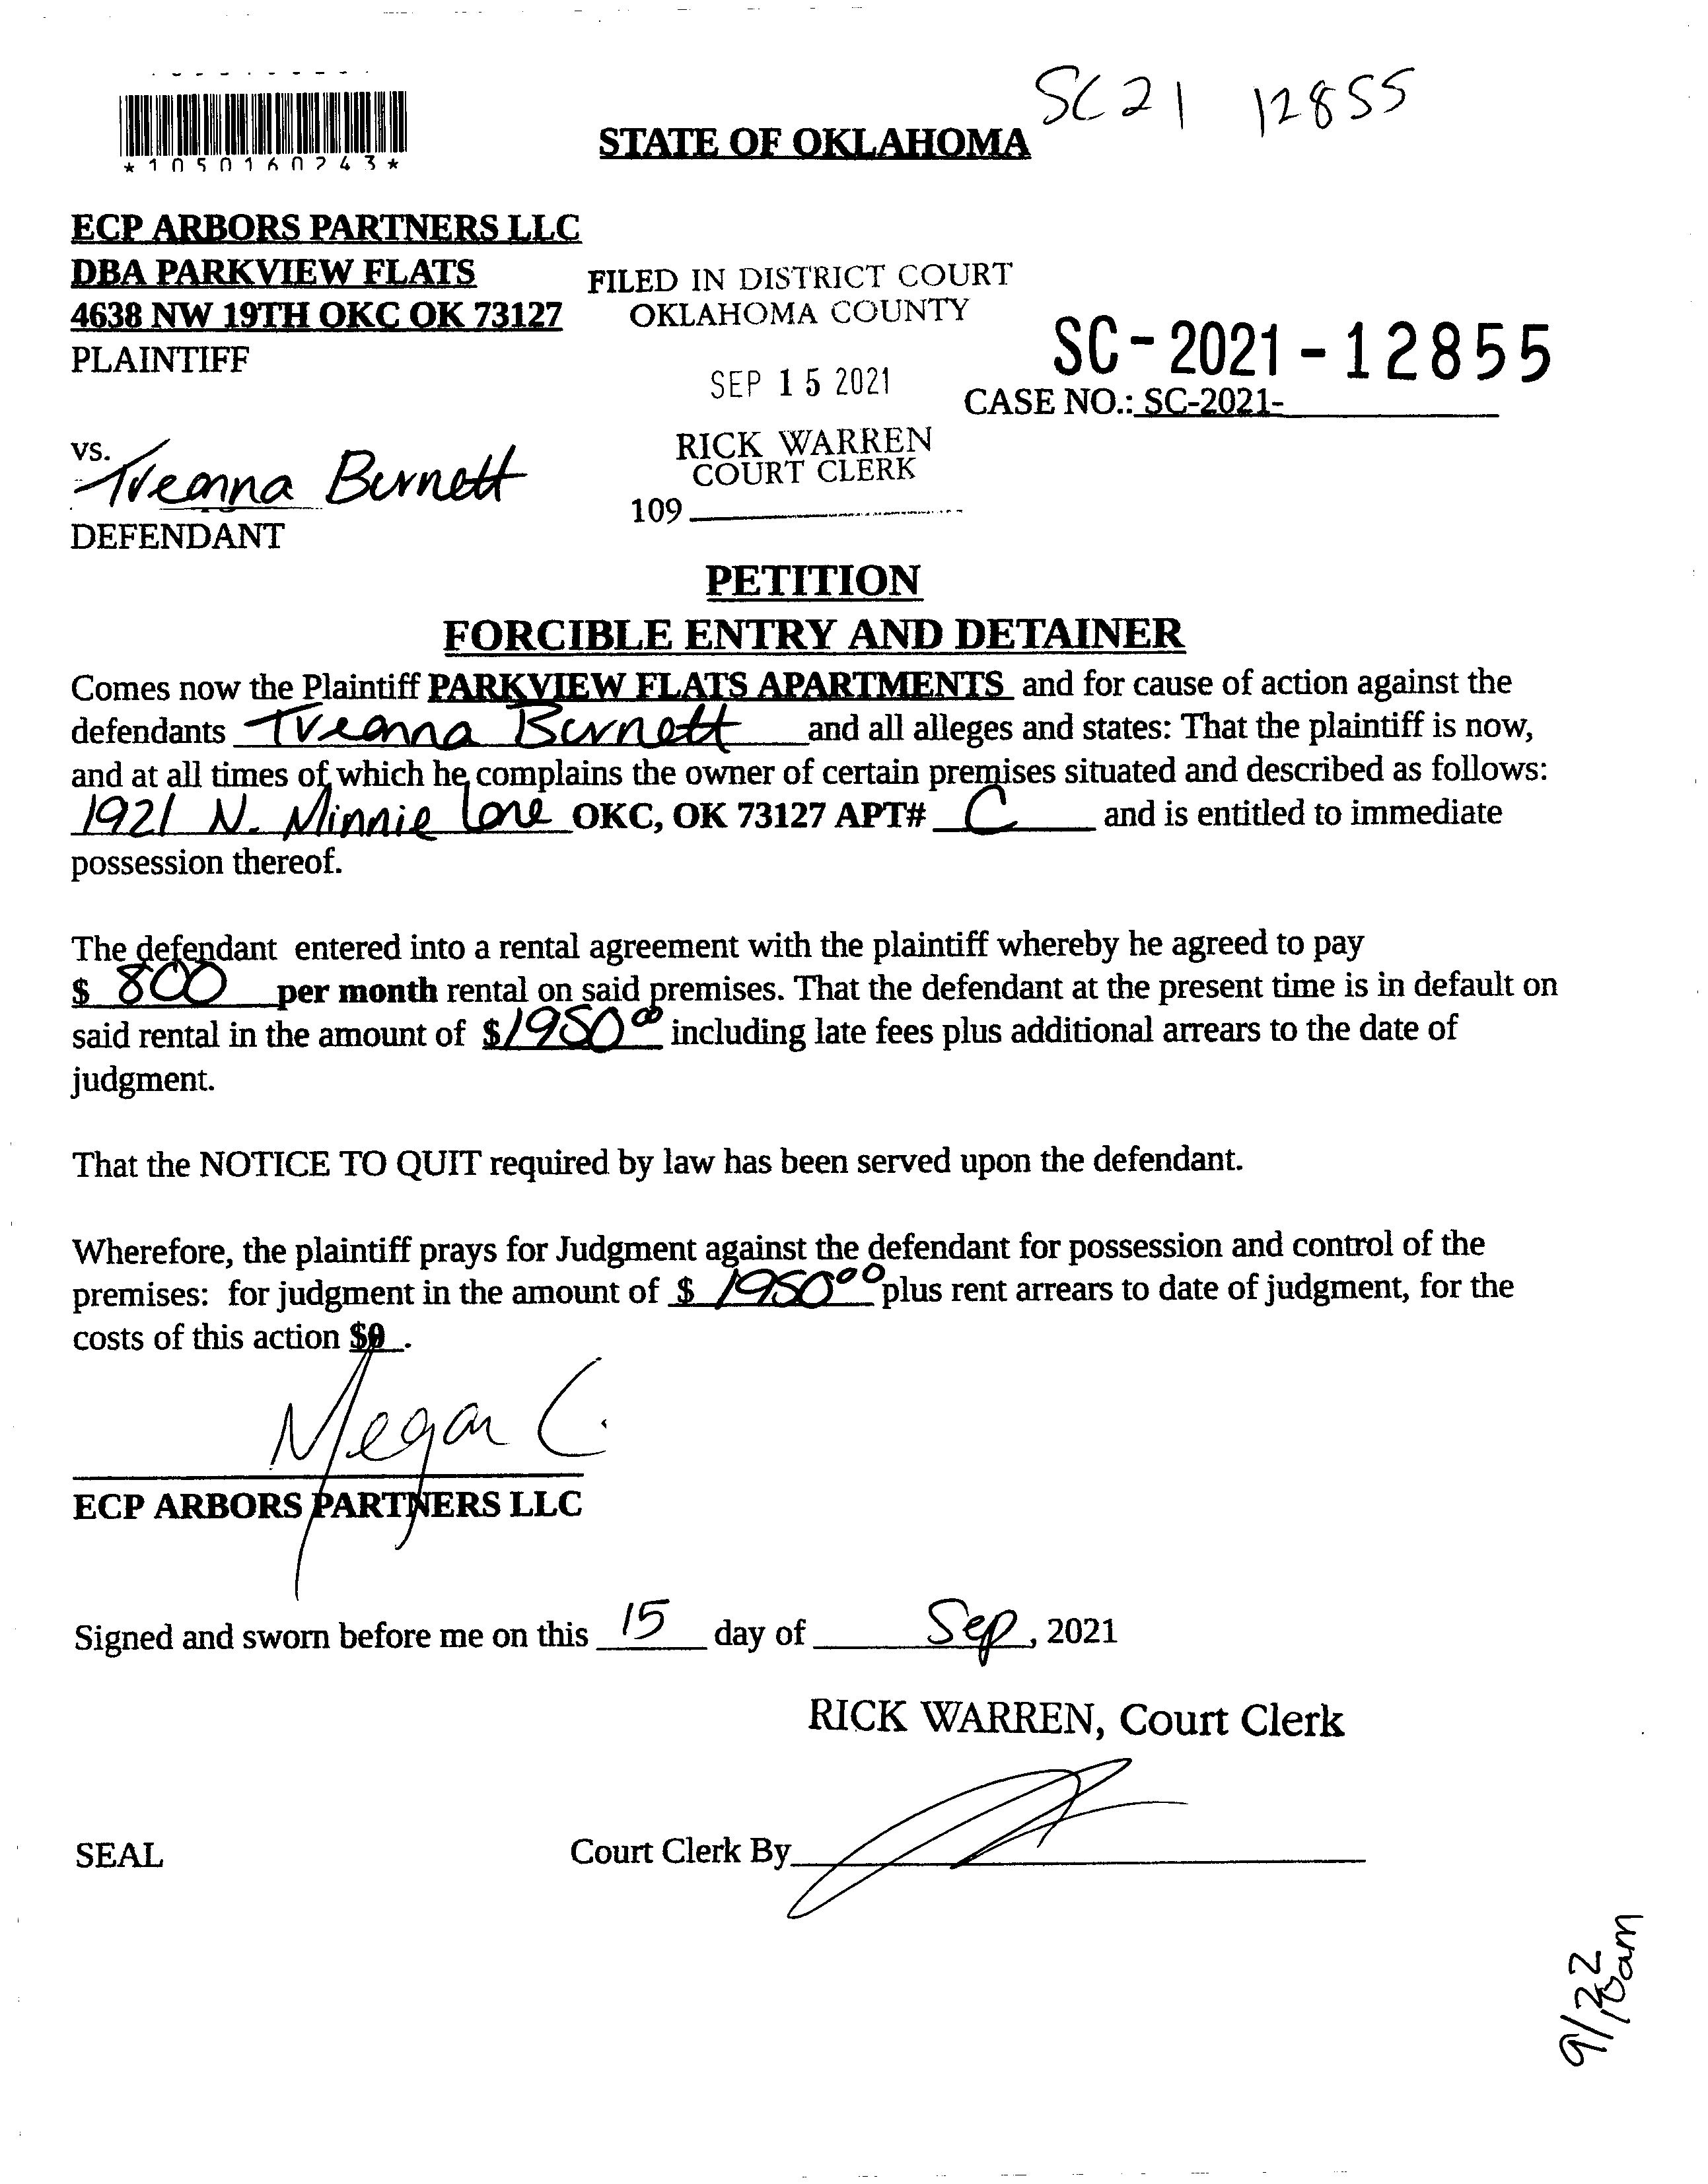 SC21 12855
*1050160243*
STATE OF OKLAHOMA
ECP ARBORS PARTNERS LLC
DBA PARKVIEW FLATS
4638 NW 19TH OKC OK 73127
PLAINTIFF
FILED IN DISTRICT COURT
OKLAHOMA COUNTY
SEP 15 2021
RICK WARREN
COURT CLERK
109
SC-2021-12855
CASE NO.: SC-2021-
vs.
Treanna Burnett
DEFENDANT
PETITION
FORCIBLE ENTRY AND DETAINER
Comes now the Plaintiff PARKVIEW FLATS APARTMENTS and for cause of action against the
defendants Treanna Burnett and all alleges and states: That the plaintiff is now,
and at all times of which he complains the owner of certain premises situated and described as follows:
1921 N. Minnie Lane OKC, OK 73127 APT# C and is entitled to immediate
possession thereof.
The defendant entered into a rental agreement with the plaintiff whereby he agreed to pay
$ 800 per month rental on said premises. That the defendant at the present time is in default on
said rental in the amount of $1950.00 including late fees plus additional arrears to the date of
judgment.
That the NOTICE TO QUIT required by law has been served upon the defendant.
Wherefore, the plaintiff prays for Judgment against the defendant for possession and control of the
premises: for judgment in the amount of $ 1950.00 plus rent arrears to date of judgment, for the
costs of this action $0.
Megan C.
ECP ARBORS PARTNERS LLC
Signed and sworn before me on this 15 day of Sep, 2021
RICK WARREN, Court Clerk
SEAL
Court Clerk By
9/22
10am